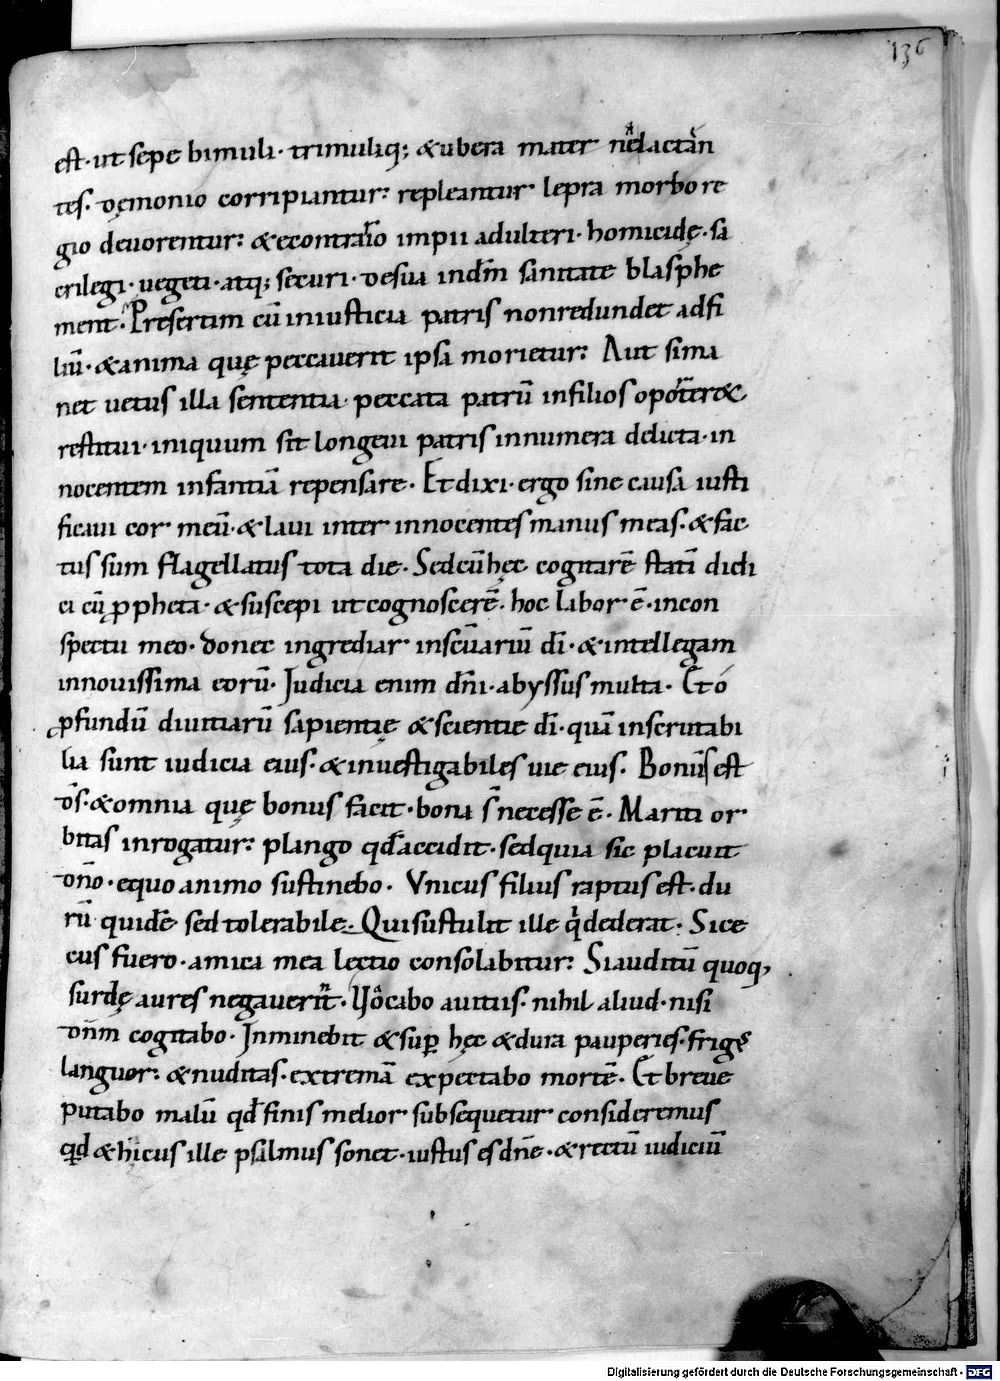 136
est· ut sepe bimuli· trimuliq; & ubera mater nelactan
tes· demonio corripiantur: repleantur lepra morbo re
gio deuorentur: & econtrario impii adulteri· homicidę· sa
crilegi· uegeti· atq; securi· desua indn̄i sanitate blasphe
ment· Presertim cū iniusticia patris nonredundet adfi
liū· & anima quę peccauerit ipsa morietur: Aut sima
net uetus illa sententia· peccata patrū infilios oportere
restitui· iniquum sit longeui patris innumera delicta· in
nocentem infantiā repensare· Et dixi· ergo sine causa iusti
ficaui cor meū· & laui inter innocentes manus meas· & fac
tus sum flagellatus tota die· Sed cū hęc cogitarē statī didi
ci cū ꝓpheta· & suscepi ut cognoscerē· hoc labor ē· incon
spectu meo· donec ingrediar inscūariū dī· & intellegam
innouissima eorū· Iudicia enim dn̄i· abyssus multa· Et ó
ꝓfundū diuitiarū sapientię & scientie dī· quā inscrutabi
lia sunt iudicia eius· & inuestigabiles uie eius· Bonus est
d̄s· & omnia quę bonus facit· bona s̄ necesse ē· Mariti or
bitas inrogatur: plango qđ accidit· sed quia sic placuit
dn̄o· equo animo sustinebo· Vnicus filius raptus est· du
rū quidē sed tolerabile· Qui sustulit ille q̇ dederat· Sice
cus fuero· amica mea lectio consolabitur: Si auditū quoq,
surdę aures negauerīt· Uocabo auitus· nihil aliud· nisi
dn̄m cogitabo· Inminebit & suꝑ hęc & dura pauperies· frigꝰ
languor: & nuditas· extremā expectabo mortē· Et breue
putabo malū qđ finis melior subsequetur consideremus
qđ & hicus ille psalmus sonet· iustus es dn̄e· & rectū iudiciū
Digitalisierung gefördert durch die Deutsche Forschungsgemeinschaft - DFG